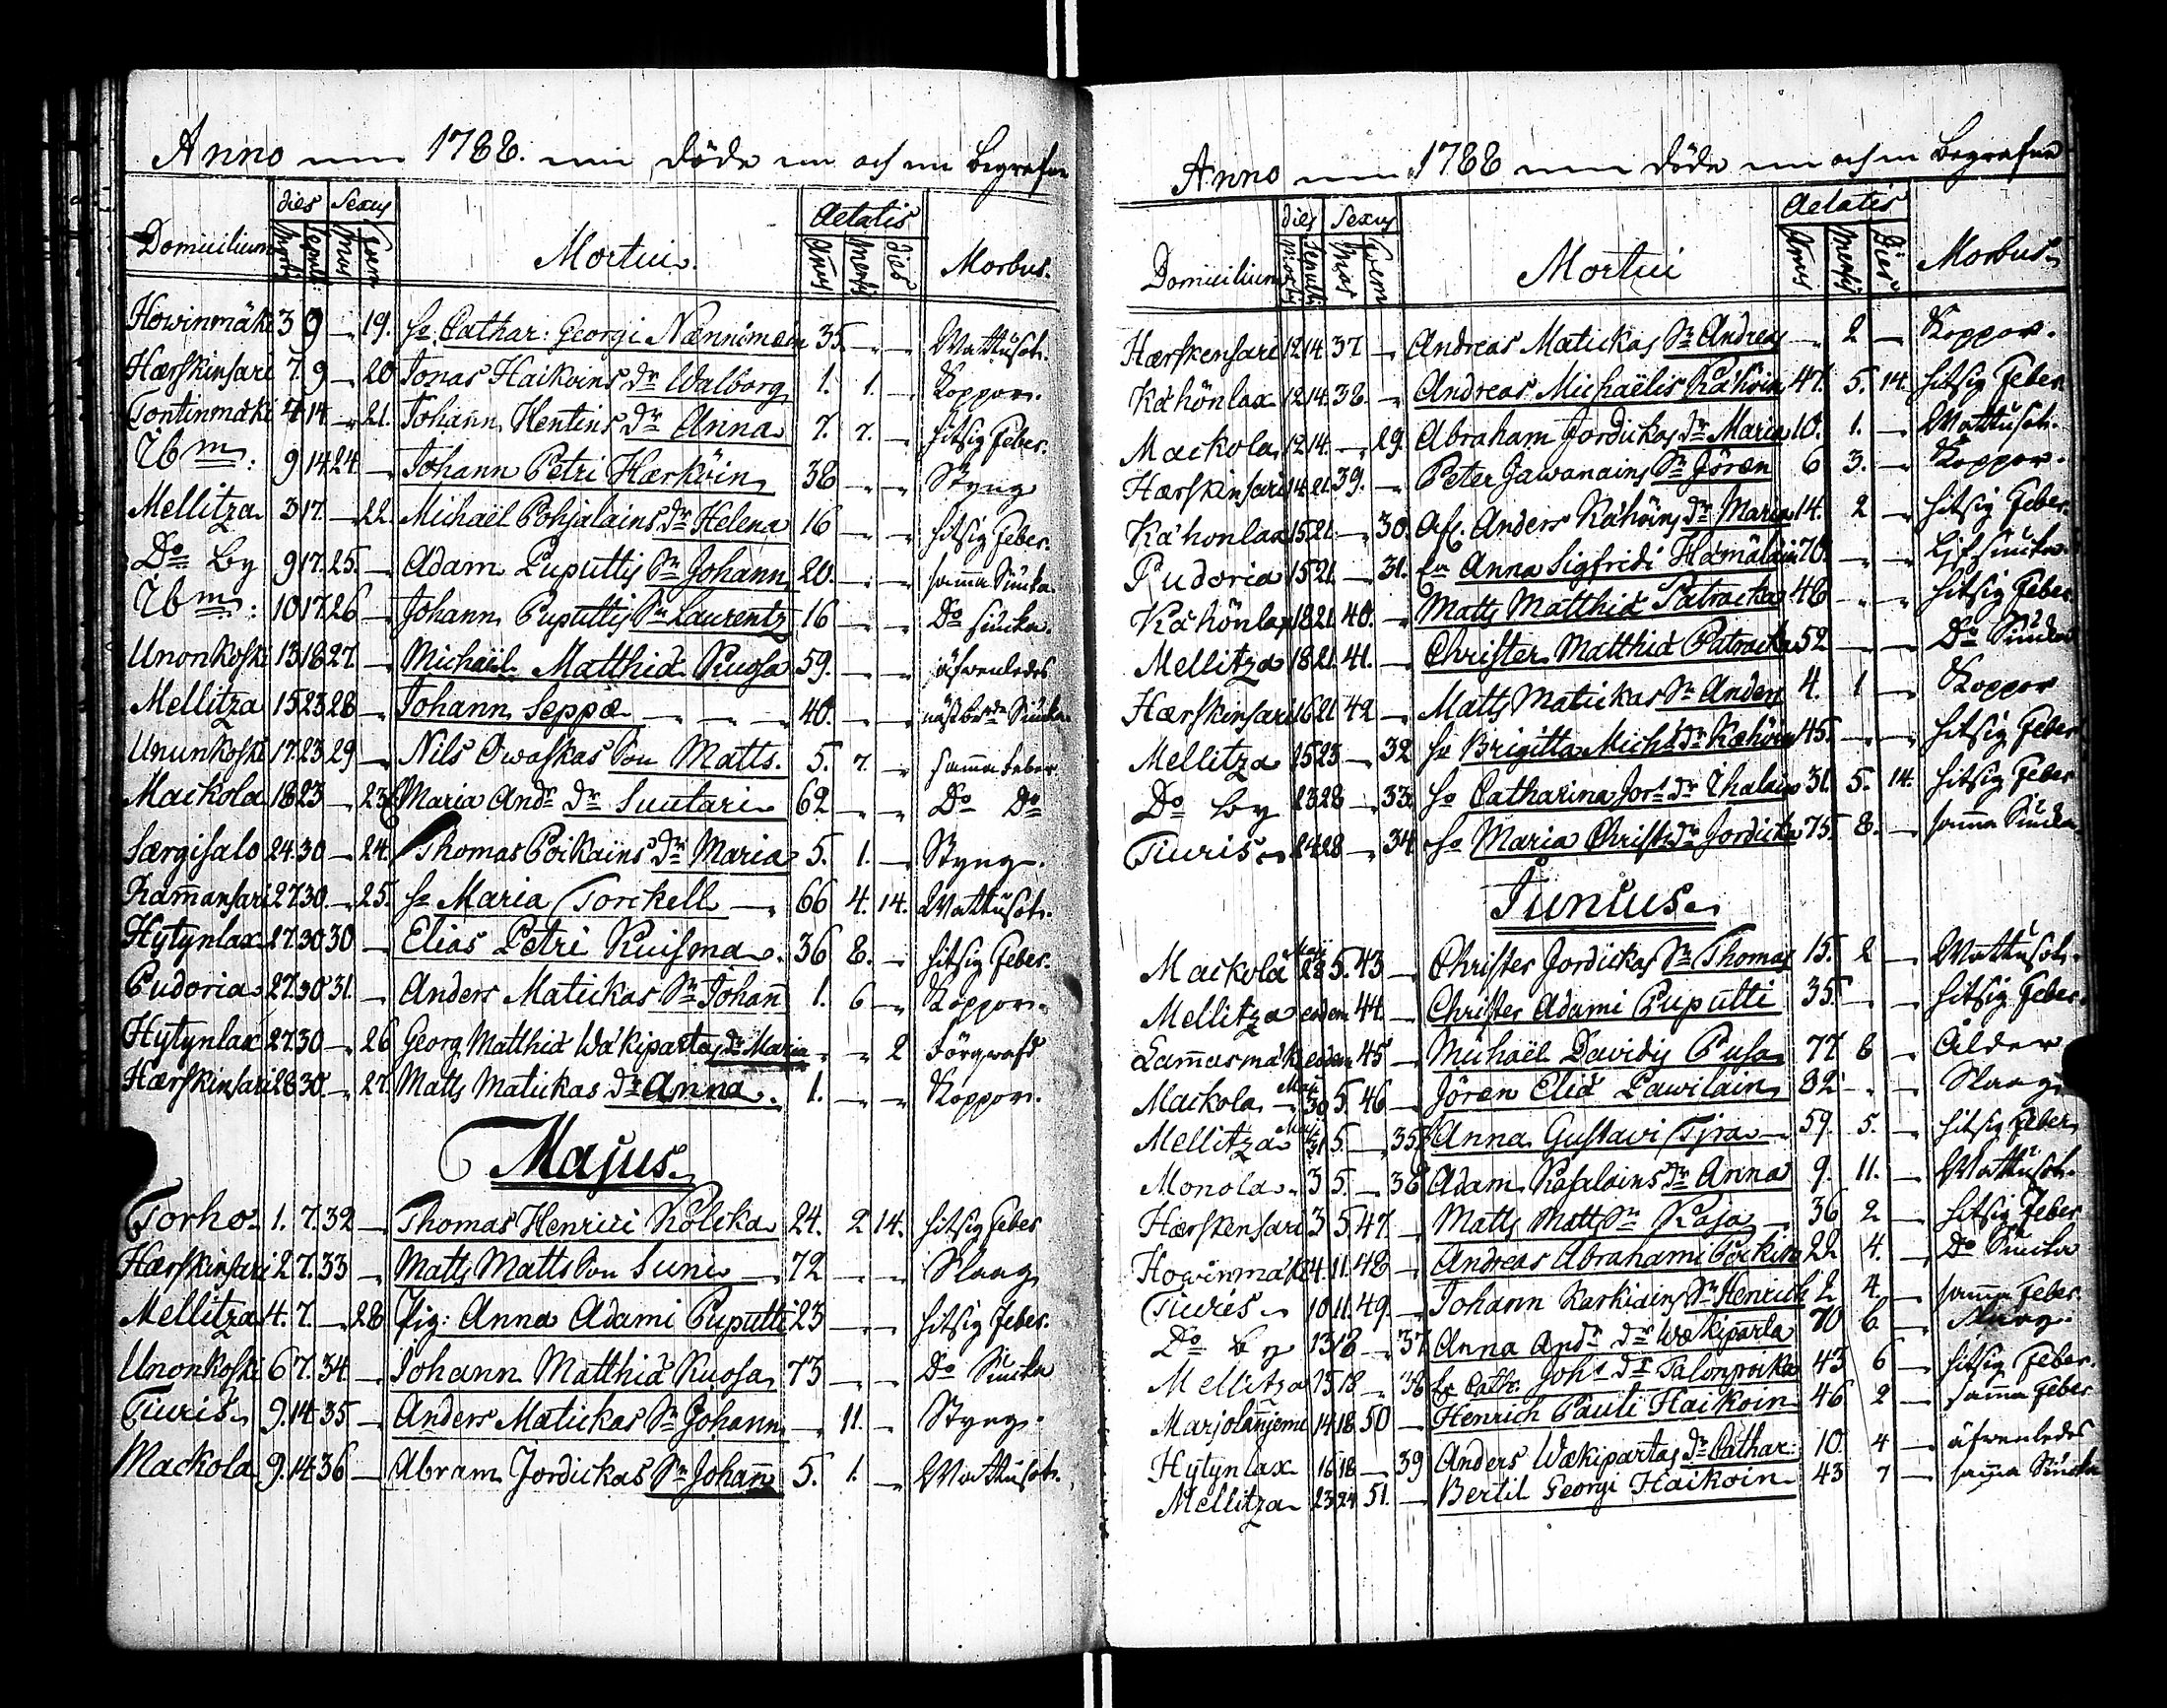 Anno 1788. döde och begrafne
dies Sexus Aetatis
Domicilium Mortui Sepulti Mas Foem Mortui. Annus Mensis Dies Morbus.
Howinmäki 3 9 — 19. H: Cathar: Georgi Nænnimäin 35. — — Wattusot.
Hærskinsari 7. 9 — 20 Jonas Haikoins Dr Walborg 1. 1. — Koppor.
Tontinmäki 4 14. — 21. Johann Hentins Dr Anna 7. 7. — hitsig Feber.
Ibm: 9 14 24. — Johann Petri Hærköin 38 — — Styng
Mellitza 3 17. — 22. Michaël Pohjalains Dr Helena 16 — — hitsig Feber.
Do By 9 17. 25. — Adam Puputtis Sn Johann 20. — — samma Siucka
Ibm: 10 17 26 — Johann Puputtis Sn Laurentz 16 — — Do siucka.
Unonkoski 13 18 27. — Michaël Matthiæ Kuosa 59. — — äfwenledes
Mellitza 15 23 28 — Johann Seppæ — — — 40. — — näst berde Siucka
Ununkoski 17. 23 29 — Nils Owaskas Son Matts. 5. 7. — samma Feber
Mackola 18 23 — 23 Maria Andr Dr Suutari 62 — — Do Do
Særgisalo 24. 30 — 24. Thomas Poikains Dr Maria 5. 1. — Styng.
Ramansari 27. 30. — 25. H: Maria Torckell — 66 4. 14. Wattusot.
Hytynlax 27. 30 30 — Elias Petri Kuisma 36 8. — hitsig Feber.
Pudoria 27. 30 31. — Anders Matickas Sn Johan 1. 6 — Koppor.
Hytynlax 27. 30 — 26 Georg Matthiæ Wäkipartas Dr Maria — — 2 Förgwafd
Hærskinsari 28 30. — 27. Matts Matickas Dr Anna. 1. — — Koppor.
Majus.
Torho 1. 7. 32 — Thomas Henrici Kölcka 24. 2 14. hitsig Feber
Hærskinsari 2 7. 33 — Matts Matts Son Suni — 72 — — Slaag
Mellitza 4. 7. — 28 Pig: Anna Adami Puputti 23 — — hitsig Feber.
Unonkoski 6 7. 34. — Johann Matthiæ Kuosa 73 — — Do Siucka
Tiuris 9. 14. 35 — Anders Matickas Sn Johann — 11. — Styng.
Mackola 9. 14. 36 — Abram Jordickas Sn Johan 5. 1. — Wattusot.
Anno 1788 döde och begrafne
dies Sexus Aetatis
Domicilium Mortui Sepulti Mas Foem Mortui Annus Mensis Dies Morbus.
Hærskensari 12 14 37 — Andreas Matickas Sn Andreas — 2 — Koppor.
Kähönlax 12 14. 38. — Andreas Michaëlis Kähöin 47. 5. 14. hitsig Feber
Mackola 12 14. — 29. Abraham Jordickas Dr Maria 10. 1. — Wattusot.
Hærskinsari 14 21. 39. — Peter Jawanains Sn Jören 6 3. — Koppor.
Kähonlax 15 21. — 30. Afl. Anders Kähöins Dr Maria 14. 2 — hitsig Feber.
Pudoria 15 21. — 31. Anna Sigfridi Hämäläin 70. — — Liflsiucka.
Kähönlax 18 21. 40. — Matts Matthiæ Patracka 48 — — hitsig Feber
Mellitza 18 21. 41. — Christer Matthiæ Patracka 52 — — Do Siucka
Hærskinsari 16 21 42 — Matts Matickas Sn Anders 4. 1 — Koppor
Mellitza 15 23 — 32 H: Brigitta Michs Dr Kæhöin 45. — — hitsig Feber
Do By 23 28 — 33 H: Catharina Jors Dr Ihalain 31. 5. 14. hitsig Feber
Tiuris 24 28 — 34 H: Maria Christ: Dr Jordicka 75. 8. — samma Siucka
Junius.
Mackola Maji 28 5. 43 — Christer Jordickas Sn Thomas 15. 2 — Wattusot.
Mellitza eodem 44. — Christer Adami Puputti 35. — — hitsig Feber.
Lammasmäki eodem 45 — Michaël Davidis Pusa 77 8 — Ålder
Mackola Maji 30 5. 46 — Jören Eliæ Pawilain 82 — — Slaag
Mellitza Maji 31 5. — 35. Anna Gustavi Tyra — 59. 5. — hitsig Feber
Monola 3 5. — 36 Adam Kasalains Dr Anna 9. 11. — Wattusot.
Hærskensari 3 5 47. — Matts Matts Sn Kaja — 36 2 — hitsig Feber
Howinmäki 4. 11. 48 — Andreas Abrahami Poikin 22 4. — Do Siucka
Tiuris 10 11. 49. — Johann Karkiains Sn Henrich 2 4. — samma Feber.
Do By 13 18 — 37 Anna Andr Dr Wækiparta 70 6. — Slaag
Mellitza 15 18. — 38 H: Cath: Johs Dr Talonpoika 43 6 — hitsig Feber.
Marjolanjemi 14 18 50 — Henrich Pauli Haikoin 46 2 — samma Feber
Hytynlax 16 18 — 39 Anders Wækipartas Dr Cathar: 10. 4 — äfwenledes
Mellitza 23 24 51. — Bertil Georgi Haikoin 43 7 — samma Siucka